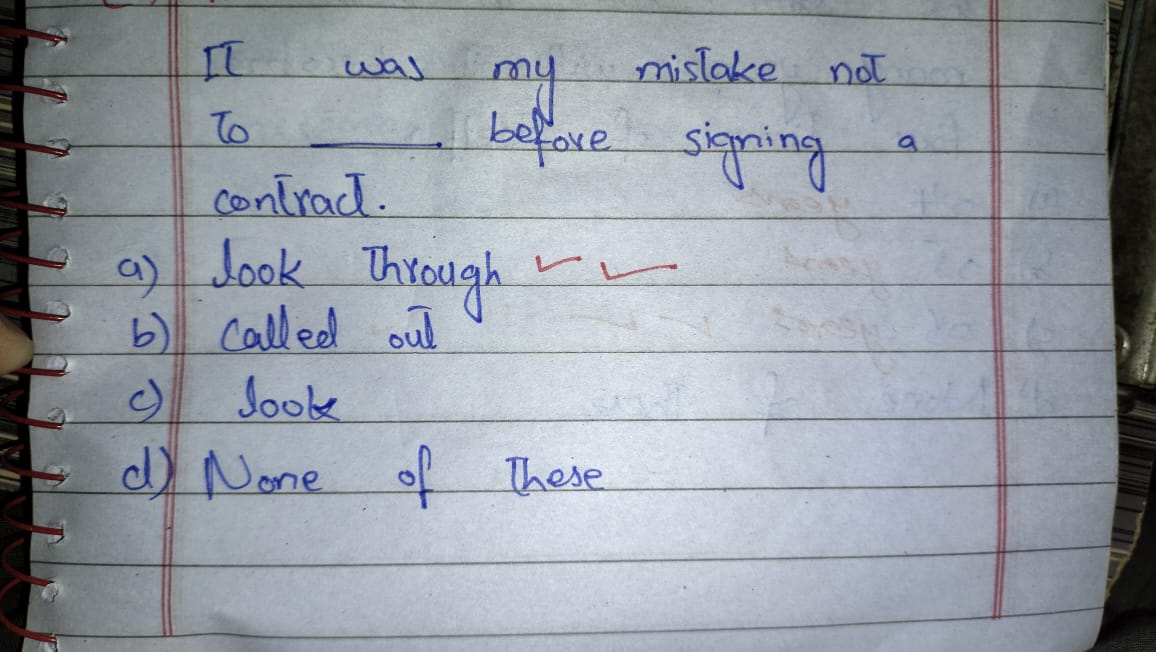 It was my mistake not
To ______. before signing a
contract.
a) look Through
b) Called out
c) look
d) None of These